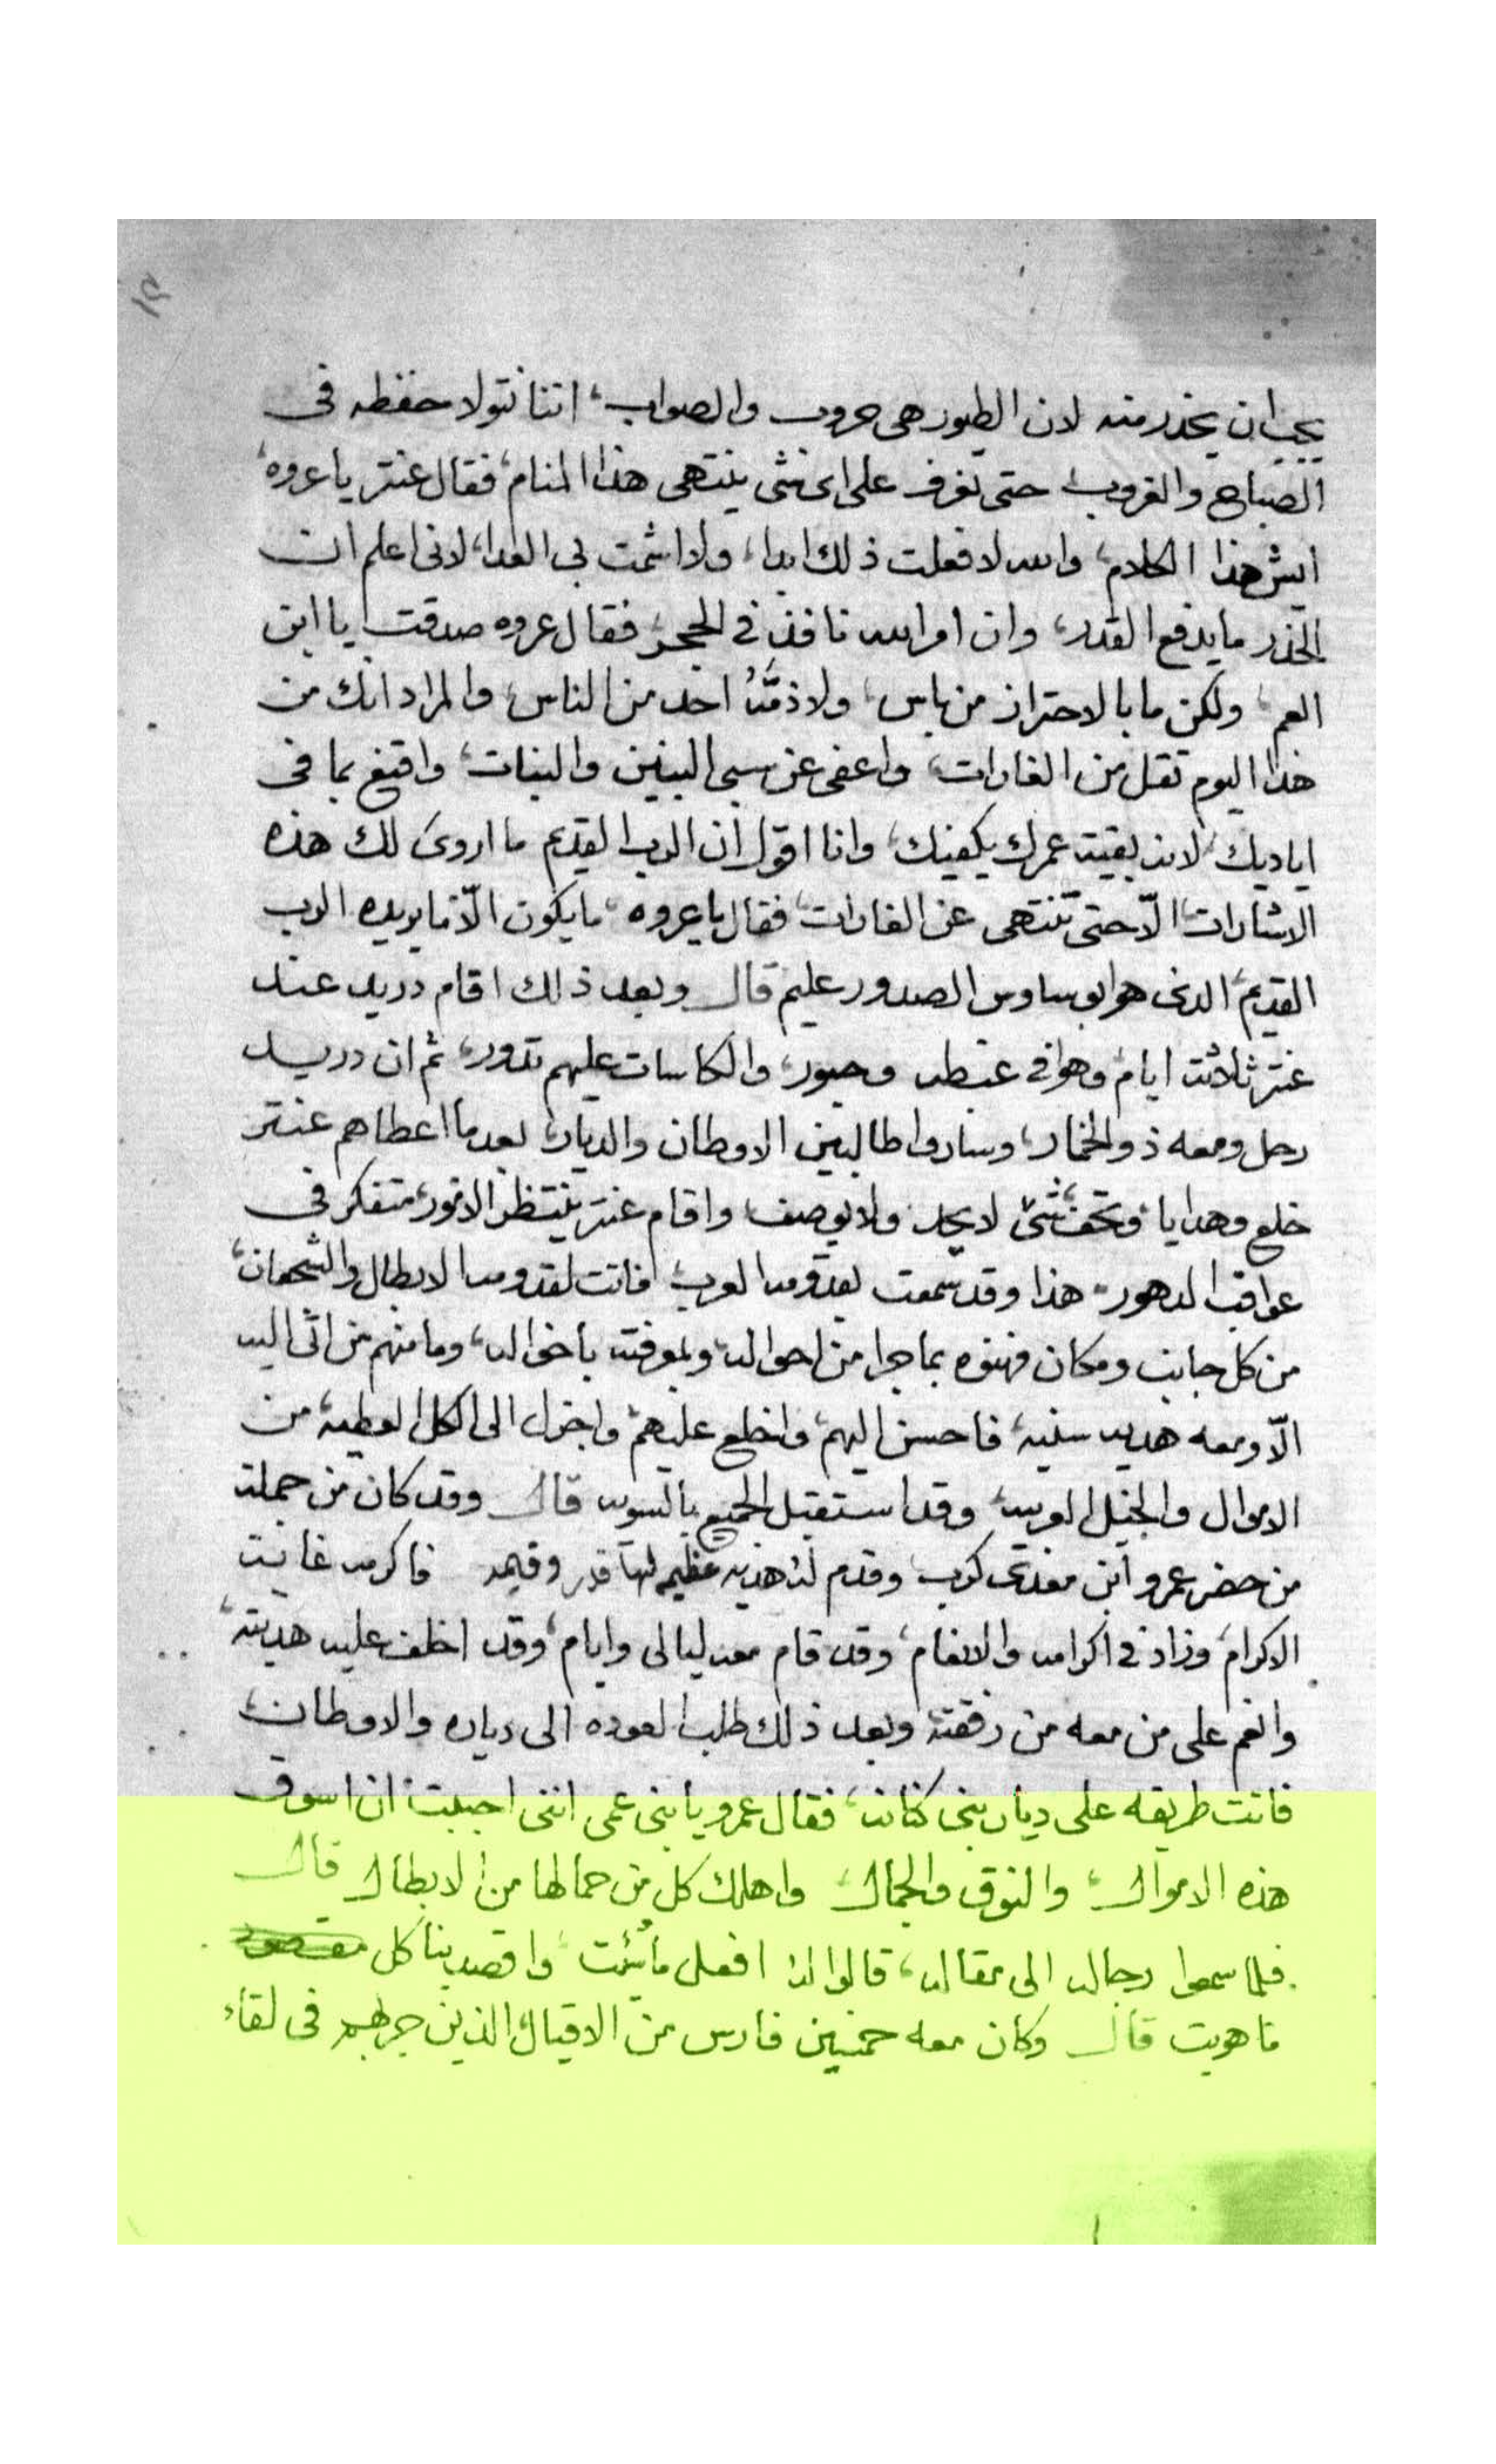 يجب ان يحذر منه لان الطيور هى حروب والصواب، اننا نتولا حفظه فى
الصباح والغروب حتى نعرف على اى شى ينتهى هذا المنام، فقال عنتر يا عروه،
ايش هذا الكلام، والله لا فعلت ذلك ابدا، ولا اشمت بى العدا، لانى اعلم ان
الحذر ما يدفع القدر، وان امر الله نافذ في الحجر، فقال عروه صدقت يا ابن
العم، ولكن ما بالاحتراز من باس، ولا ذمّهُ احد من الناس، والمراد انك من
هذا اليوم تقل من الغارات، واعفى عن سبى البنين والبنات، واقنع بما فى
اياديك، لانه بقيت عمرك يكفيك، وانا اقول ان الرب القديم ما اروى لك هذه
الاشارات، الّا حتى تنتهى عن الغارات، فقال يا عروه، ما يكون الّا ما يريده الرب
القديم، الذى هو بوساوس الصدور عليم قال وبعد ذلك اقام دريد عند
عنتر ثلاثت ايام، وهو في غبطه وحبور، والكاسات عليهم تدور، ثم ان دريد
رحل ومعه ذو الخمار، وساروا طالبين الاوطان والديار، بعد ما اعطاهم عنتر
خلع وهدايا، وتحف شىٔ، لا يحد ولا يوصف، واقام عنتر ينتظر الامور، متفكر فى
عواقب الدهور، هذا وقد سمعت بقدومه العرب، فاتت لقدومه الابطال والشجعان،
من كل جانب ومكان فهنوه بما جرا من احواله، وبمعرفته باخواله، وما منهم من اتى اليه
الّا ومعه هديه سنيه، فاحسن اليهم، واخلع عليهم، واجزل الى الكل العطيه، من
الاموال والخيل العربيه، وقد استقبل الجميع بالسويه قال وقد كان من جملت
من حضر عمرو ابن معدى كرب، وقدم له هديه عظيمه لها قدر وقيمه فاكرمه غايت
الاكرام، وزاد في اكرامه والانعام، وقد قام معه ليالى وايام، وقد اخلف عليه هديته،
وانعم على من معه من رفقته، وبعد ذلك طلب العوده الى دياره والاوطان،
فاتت طريقه على ديار بنى كنانه، فقال عمرو يا بنى عمى اننى احببت ان اسوق
هذه الاموال، والنوق والجمال، واهلك كل من حمالها من الابطال قال
فلما سمعوا رجاله الى مقاله، قالوا له افعل ما شئت، واقصد بنا كل
ما هويت قال وكان معه خمسين فارس من الاقيال، الذين جربهم فى لقاء